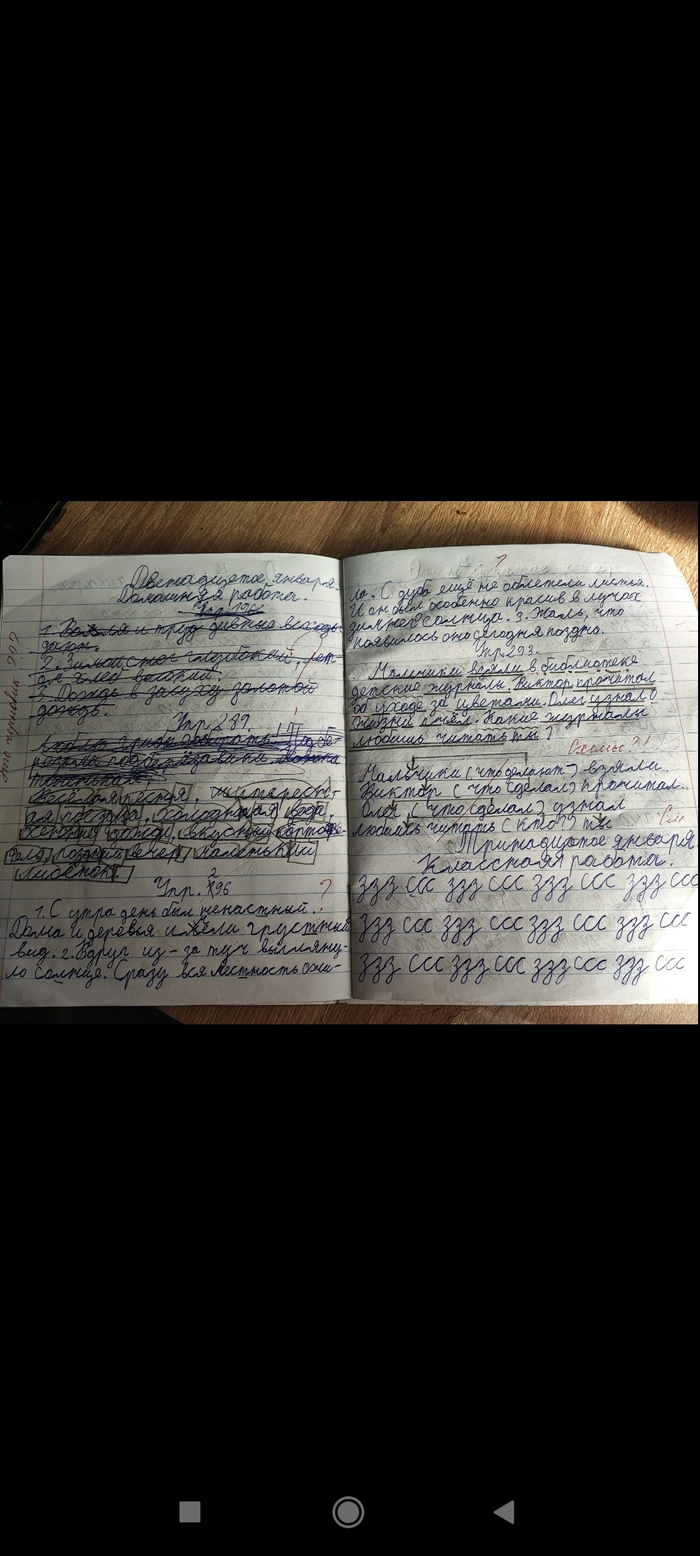 Двенадцатое января.
Домашняя работа.
Упр. 196
1. Воля и труд дивные всходы
2. Зимой снег глубокий, лет-
ом хлеб высокий.
3. Дождь в засуху золотой
дождь.
Упр. 289.
Это черновик???
Весёлая песня, интересн-
ая холодная вода,
осенний дождь, вкусный картофе-
ль, поздний вечер, маленький
лисёнок.
Упр. 296
?
1. С утра день был ненастный.
Дома и деревья имели грустный
вид. 2. Вдруг из-за туч выгляну-
ло солнце. Сразу вся местность ожи-
?
ла. С дуба ещё не облетели листья.
И он был особенно красив в лучах
зимнего солнца. 3. Жаль, что
появилось оно сегодня поздно.
Упр. 293.
Мальчики взяли в библиотеке
детские журналы. Виктор прочитал
об уходе за цветами. Олег узнал о
жизни пчёл. Какие журналы
любишь читать ты?
Схемы?!
Мальчики (что делают) взяли.
Виктор (что сделал) прочитал.
Олег (что сделал) узнал
См
любишь читать (кто?) ты
Тринадцатое января
Классная работа.
ззз ссс ззз ссс ззз ссс ззз ссс
ззз ссс ззз ссс ззз ссс ззз ссс
ззз ссс ззз ссс ззз ссс ззз ссс